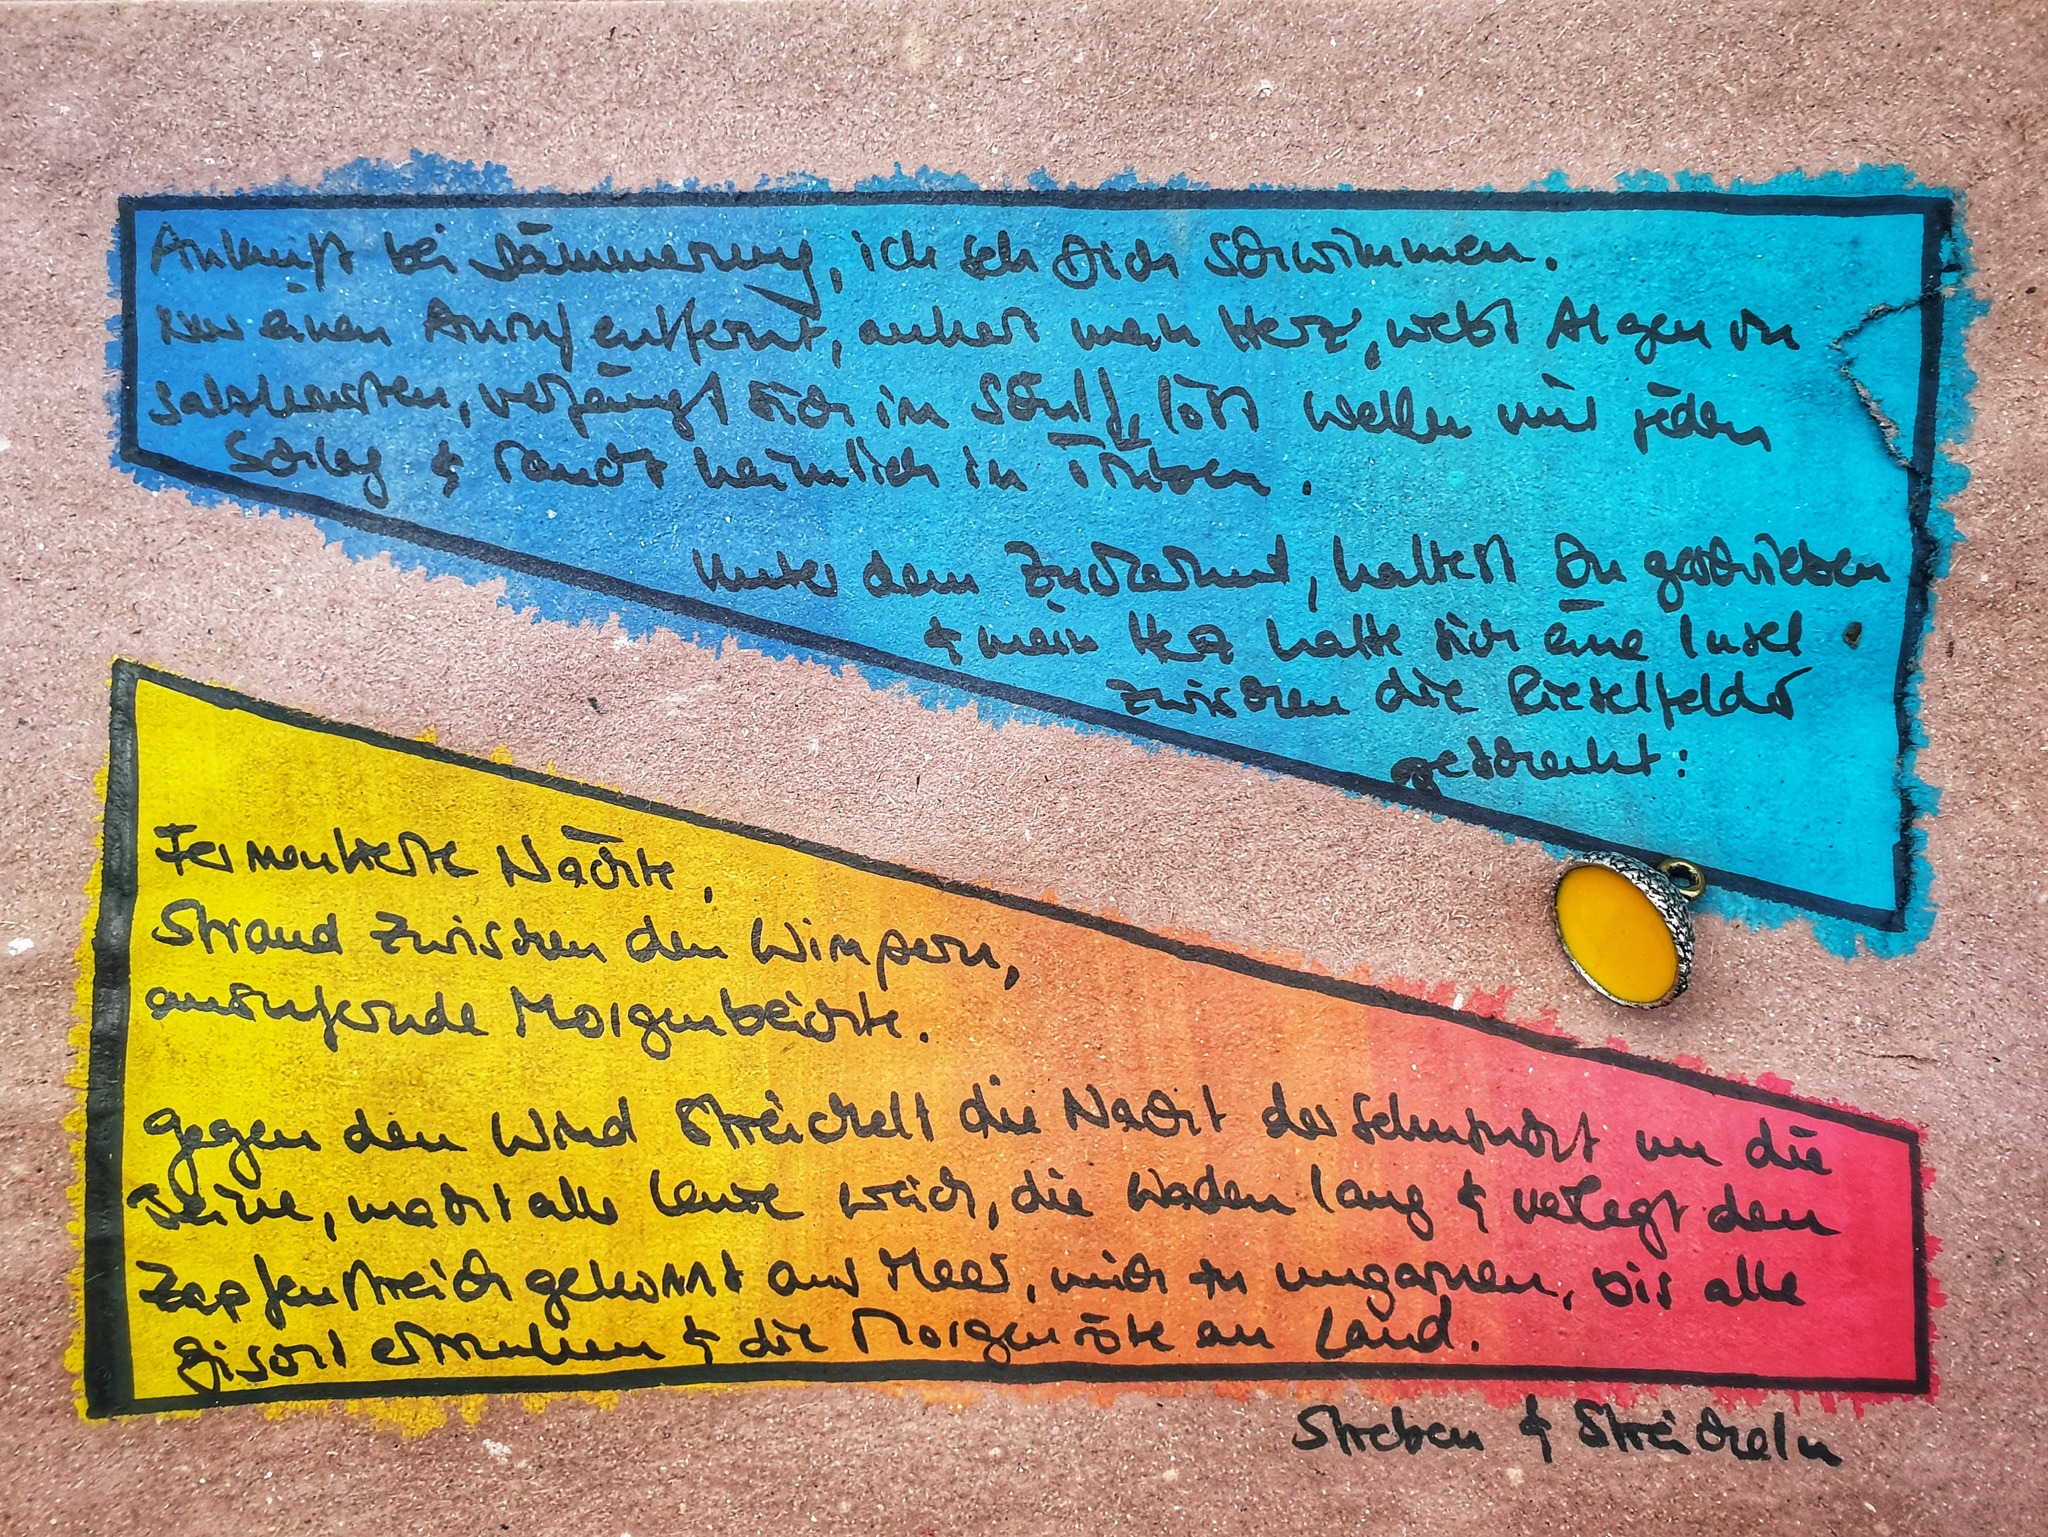 Ankunft bei Dämmerung, ich seh Dich schwimmen.
Nur einen Anruf entfernt, ankert mein Herz, webt Algen um
Salzkrusten, verfängt sich im Schilf, löst Wellen mit jedem
Schlag & taucht heimlich in Trüben.
Unter dem Zuckerhut, hattest Du geschrieben
& mein Herz hatte sich eine Insel
zwischen die Rieselfelder
gedacht:
Fermentierte Nächte,
Strand zwischen den Wimpern,
ausufernde Morgenbeichte.
Gegen den Wind streichelt die Nacht der Sehnsucht um die
Beine, macht alle weich, die Waden lang & verlegt den
Zapfenstreich gekonnt aufs Meer, mich zu umgarnen, bis alle
& die Morgenröte an Land.
Streben & Streicheln